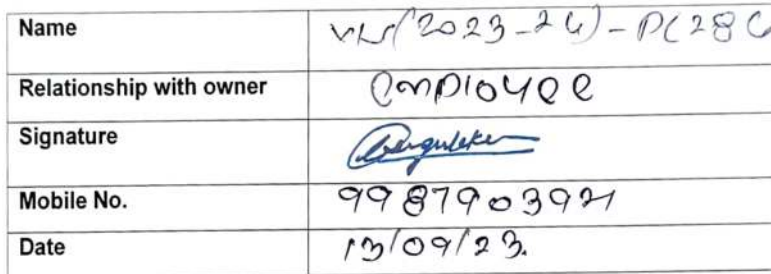 Name VLS(2023-24)-PC28
Relationship with owner employee
Signature
Mobile No. 9987903921
Date 13/09/23.